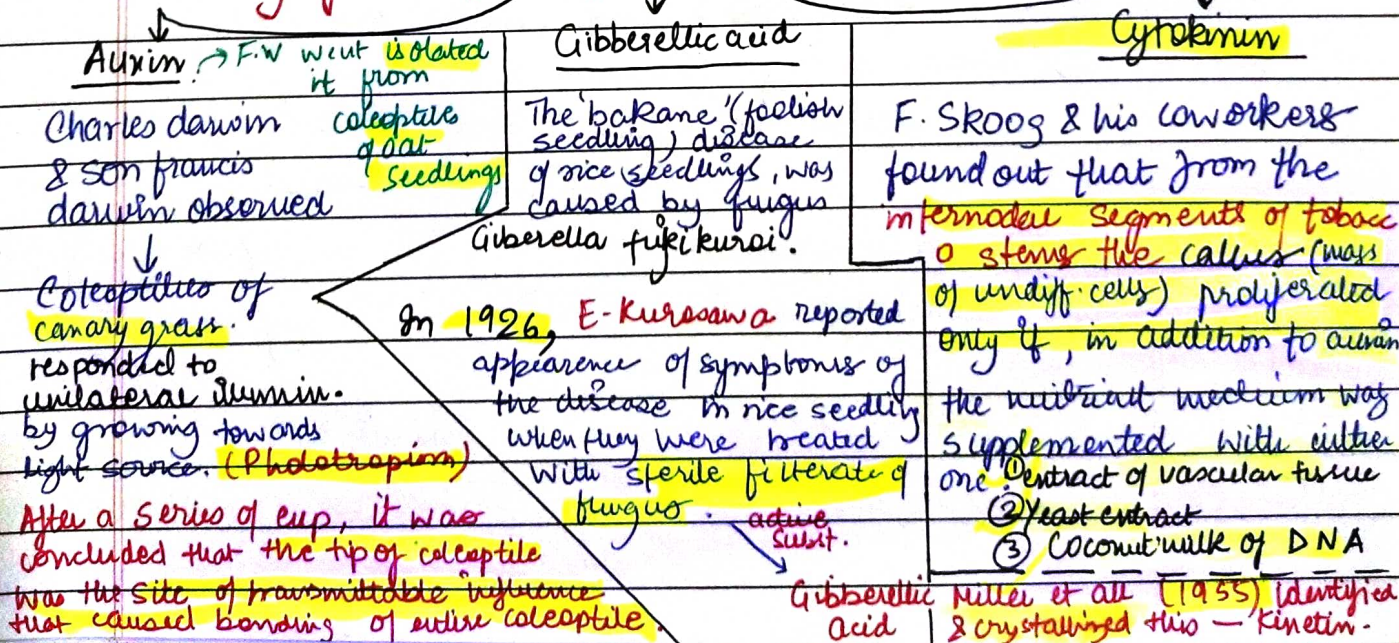 Auxin → F.W went isolated
it from
coleoptiles
of oat
seedlings
Charles darwin
& son francis
darwin observed
↓
Coleoptiles of
canary grass.
responded to
unilateral illumin.
by growing towards
light source. (Phototropism)
After a series of exp, it was
concluded that the tip of coleoptile
was the site of transmittable influence
that caused bending of entire coleoptile.
Gibberellic acid
The 'bakane' (foolish
seedling) disease
of rice seedlings, was
caused by fungus
Giberella fujikuroi.
In 1926, E-Kurosawa reported
appearence of symptoms of
the disease in rice seedling
when they were treated
with sterile filterate of
fungus.
active
subst.
Gibberellic
acid
Cytokinin
F. Skoog & his coworkers
found out that from the
internodal segments of tobacc
o stems the callus (mass
of undiff. cells) proliferated
only if, in addition to auxin
the nutrient medium was
supplemented with either
one: ① extract of vascular tissue
② Yeast extract
③ Coconut milk of DNA
Miller et all (1955) identified
& crystallized this — Kinetin.